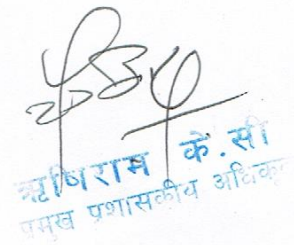 ऋषिराम के.सी
प्रमुख प्रशासकीय अधिकृत